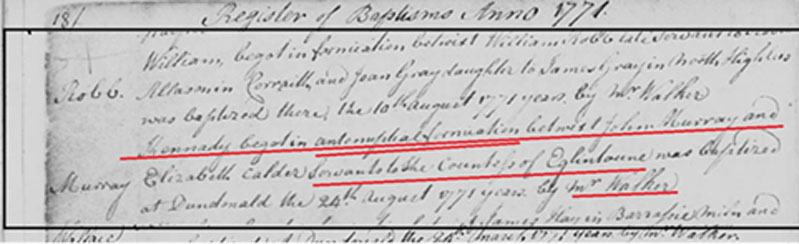 181 Register of Baptisms Anno 1771.
William, begot in fornication betwixt William Robb late Servant to
Robb. Altasmin Corraith, and Jean Gray daughter to James Gray in North Highles
was baptized there, the 10th August 1771 years. by Mr Walker
Kennady begot in antenuptial fornication betwixt John Murray and
Murray Elizabeth Calder Servants to the Countess of Eglintoune was baptized
at Dundonald the 24th August 1771 years. by Mr Walker
James Hay in Barrassie miln and
Wallace Dundonald the March 1771 years by Mr Walker.